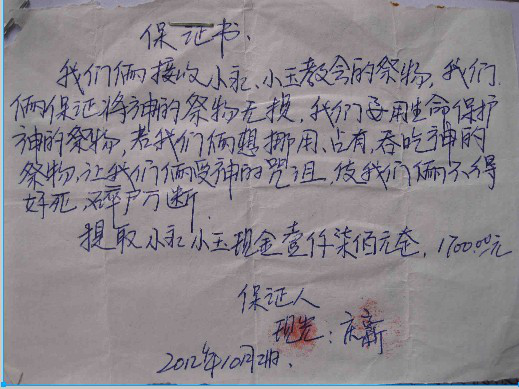 保证书.
我们俩接收小永、小玉教会的祭物,我们
俩保证将神的祭物无损,我们要用生命保护
神的祭物,若我们俩想挪用、占有、吞吃神的
祭物,让我们俩受神的咒诅,使我们俩不得
好死,碎尸万断.
提取小永 小玉现金壹仟柒佰元整, 1700.00元
保证人
现先: 庆新
2012年10月2日.